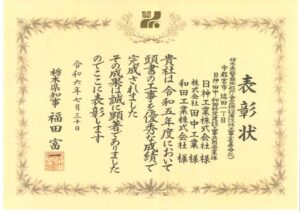 表彰状
宇都宮市
日神工業株式会社 様
株式会社田中工業 様
和田工業株式会社 様
貴社は令和五年度において
頭書の工事を優秀な成績で
完成されました
その成果は誠に顕著でありました
のでここに表彰します
令和六年七月三十日
栃木県知事 福田富一